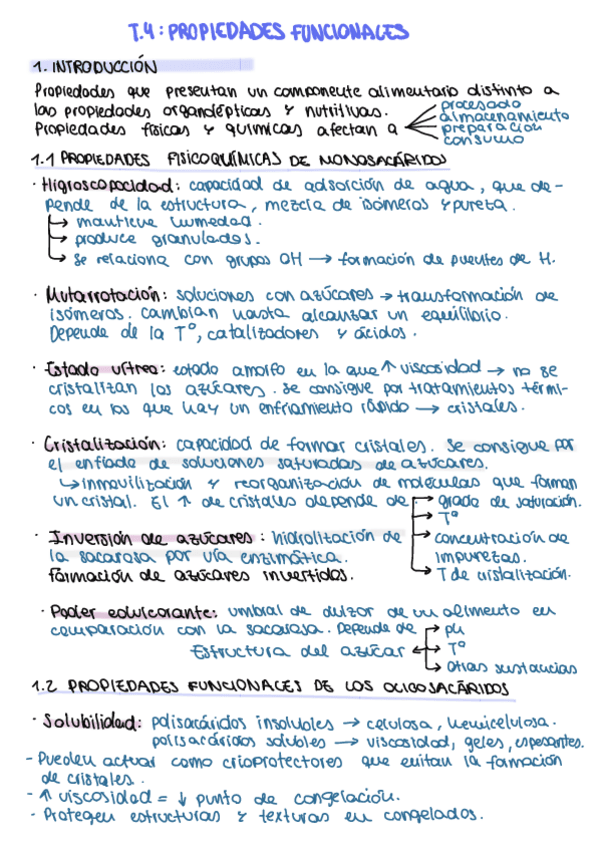 T.4: PROPIEDADES FUNCIONALES
1. INTRODUCCIÓN
Propiedades que presentan un componente alimentario distinto a
las propiedades organolépticas y nutritivas.
Propiedades físicas y químicas afectan a
procesado
almacenamiento
preparación
consumo
1.1 PROPIEDADES FISICOQUÍMICAS DE MONOSACÁRIDOS
· Higroscopocidad: capacidad de adsorción de agua, que de-
pende de la estructura, mezcla de isómeros y pureza.
↳ mantiene humedad.
↳ produce granulados.
↳ se relaciona con grupos OH → formación de puentes de H.
· Mutarrotación: soluciones con azúcares → transformación de
isómeros. Cambian hasta alcanzar un equilibrio.
Depende de la Tº, catalizadores y ácidos.
· Estado vítreo: estado amorfo en la que ↑ viscosidad → no se
cristalizan los azúcares. Se consigue por tratamientos térmi-
cos en los que hay un enfriamiento rápido → cristales.
· Cristalización: capacidad de formar cristales. Se consigue por
el enfiado de soluciones saturadas de azúcares.
↳ inmovilización y reorganización de moléculas que forman
un cristal. El ↑ de cristales depende de
→ grado de saturación.
→ Tº
→ concentración de
impurezas.
→ T de cristalización.
· Inversión de azúcares: hidrolización de
la sacarosa por vía enzimática.
formación de azúcares invertidos.
· Poder edulcorante: umbral de dulzor de un alimento en
comparación con la sacarosa. Depende de → pH
Estructura del azúcar ↔ Tº
→ otras sustancias
1.2 PROPIEDADES FUNCIONALES DE LOS OLIGOSACÁRIDOS
· Solubilidad: polisacáridos insolubles → celulosa, hemicelulosa.
polisacáridos solubles → viscosidad, geles, espesantes.
- Pueden actuar como crioprotectores que evitan la formación
de cristales.
- ↑ viscosidad = ↓ punto de congelación.
- Protegen estructuras y texturas en congelados.